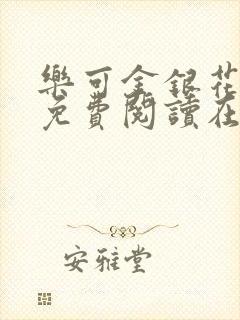 樂可金銀花
免費閱讀在
安雅堂